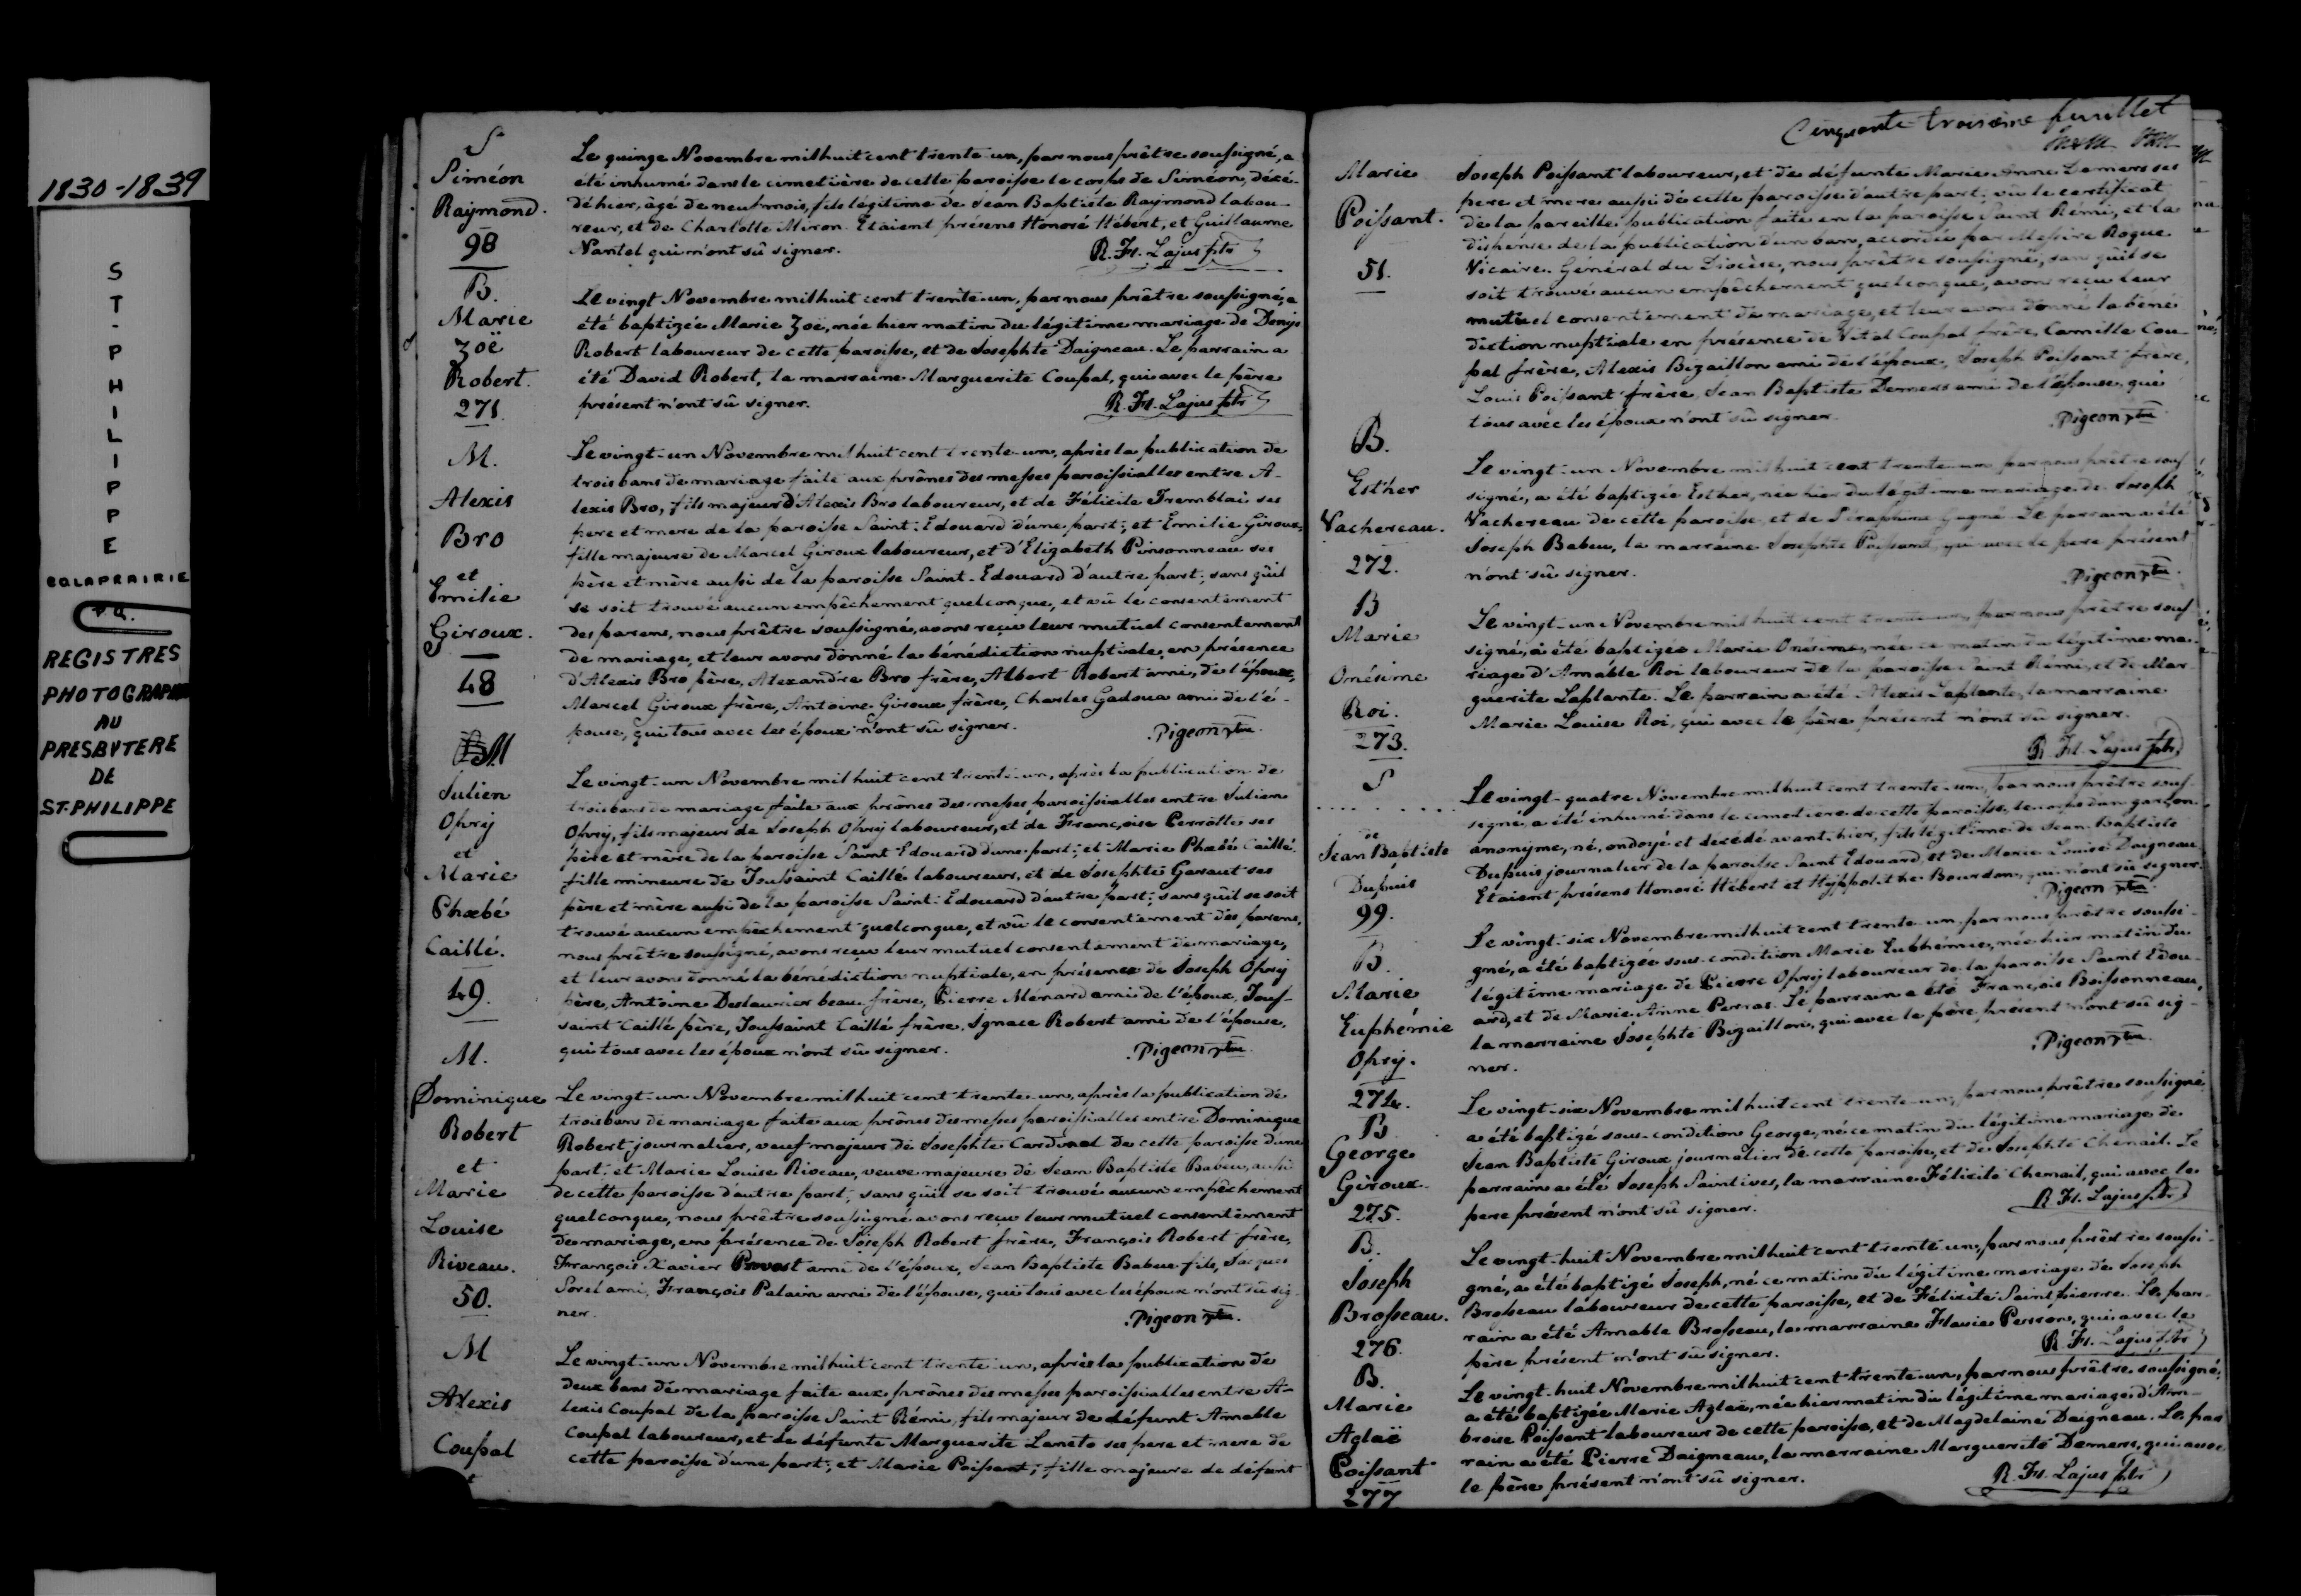 1830-1839
ST-PHILIPPE
CO LAPRAIRIE
P.Q.
REGISTRES
PHOTOGRAPHIÉ
AU
PRESBYTERE
DE
ST-PHILIPPE
S
Siméon
Raÿmond.
98
Le quinze Novembre mil huit cent trente-un, par nous prêtre soussigné, a
été inhumé dans le cimetière de cette paroisse le corps de Siméon, décé-
dé hier, âgé de neuf mois, fils légitime de Jean Baptiste Raÿmond labou-
reur, et de Charlotte Miron. Etaient présens Honoré Hébert, et Guillaume
Nantel qui n'ont sû signer. R. Fs. Lajus ptr
B.
Marie
Zoë
Robert.
271.
Le vingt Novembre mil huit cent trente-un, par nous prêtre soussigné, a
été baptizée Marie Zoë, née hier matin du légitime mariage de Denys
Robert laboureur de cette paroisse, et de Josephte Daigneau. Le parrain a
été David Robert, la marraine Marguerite Coupal, qui avec le père
présent n'ont sû signer. R. Fs. Lajus ptr
M.
Alexis
Bro
et
Emilie
Giroux.
48
Le vingt-un Novembre mil huit cent trente-un, après la publication de
trois bans de mariage faite aux prônes des messes paroissialles entre A-
lexis Bro, fils majeur d'Alexis Bro laboureur, et de Félicite Tremblai ses
pere et mere de la paroisse Saint-Edouard d'une part; et Emilie Giroux,
fille majeure de Marcel Giroux laboureur, et d'Elizabeth Pinsonneau ses
père et mère aussi de la paroisse Saint-Edouard d'autre part; sans qu'il
se soit trouvé aucun empêchement quelconque, et vû le consentement
des parens, nous prêtre soussigné, avons reçu leur mutuel consentement
de mariage, et leur avons donné la bénédiction nuptiale, en présence
d'Alexis Bro père, Alexandre Bro frère, Albert Robert ami, de l'époux,
Marcel Giroux frère, Antoine Giroux frère, Charles Gadoua ami de l'é-
pouse, qui tous avec les époux n'ont sû signer. Pigeon ptre.
M
Julien
Opry
et
Marie
Phœbé
Caillé.
49.
Le vingt-un Novembre mil huit cent trente-un, après la publication de
trois bans de mariage faite aux prônes des messes paroissialles entre Julien
Opry, fils majeur de Joseph Opry laboureur, et de Françoise Perrotte ses
père et mère de la paroisse Saint Edouard d'une part; et Marie Phœbé Caillé,
fille mineure de Toussaint Caillé laboureur, et de Josephte Garaut ses
père et mère aussi de la paroisse Saint-Edouard d'autre part; sans qu'il se soit
trouvé aucun empêchement quelconque, et vû le consentement des parens,
nous prêtre soussigné, avons reçu leur mutuel consentement de mariage,
et leur avons donné la bénédiction nuptiale, en présence de Joseph Opry
père, Antoine Deslaurier beau-frère, Pierre Ménard ami de l'époux, Tous-
saint Caillé père, Toussaint Caillé frère, Ignace Robert ami de l'épouse,
qui tous avec les époux n'ont sû signer. Pigeon ptre.
M.
Dominique
Robert
et
Marie
Louise
Riveau.
50.
Le vingt-un Novembre mil huit cent trente-un, après la publication de
trois bans de mariage faite aux prônes des messes paroissialles entre Dominique
Robert journalier, veuf majeur de Josephte Cardinal de cette paroisse d'une
part; et Marie Louise Riveau, veuve majeure de Jean Baptiste Babeu, aussi
de cette paroisse d'autre part; sans qu'il se soit trouvé aucun empêchement
quelconque, nous prêtre soussigné avons reçu leur mutuel consentement
de mariage, en présence de Joseph Robert frère, François Robert frère,
François Xavier Provost ami de l'époux, Jean Baptiste Babeu fils, Jacques
Sorel ami, François Palain ami de l'épouse, qui tous avec les époux n'ont sû sig-
ner. Pigeon ptre.
M
Alexis
Coupal
et
Le vingt-un Novembre mil huit cent trente-un, après la publication de
deux bans de mariage faite aux prônes des messes paroissialles entre A-
lexis Coupal de la paroisse Saint Rémi, fils majeur de défunt Amable
Coupal laboureur, et de défunte Marguerite Laneto ses pere et mere de
cette paroisse d'une part; et Marie Poissant, fille majeure de défunt
Cinquante-troisième feuillet
Marie
Poissant.
51.
Joseph Poissant laboureur, et de défunte Marie Anne Demers ses
pere et mere aussi de cette paroisse d'autre part; vû le certificat
de la pareille publication faite en la paroisse Saint Rémi, et la
dispense de la publication d'un ban, accordée par Messire Roque
Vicaire-Général du Diocèse, nous prêtre soussigné, sans qu'il se
soit trouvé aucun empêchement quelconque, avons reçu leur
mutuel consentement de mariage, et leur avons donné la béné-
diction nuptiale en présence de Vital Coupal frère, Camille Cou-
pal frère, Alexis Bizaillon ami de l'époux, Joseph Poissant frère,
Louis Poissant frère, Jean Baptiste Demers ami de l'épouse, qui
tous avec les époux n'ont sû signer. Pigeon ptre
B.
Esther
Vachereau.
272.
Le vingt-un Novembre mil huit cent trente-un par nous prêtre sous-
signé, a été baptizée Esther, née hier du légitime mariage de Joseph
Vachereau de cette paroisse, et de Séraphine Gagné. Le parrain a été
Joseph Babeu, la marraine Josephte Poissant, qui avec le pere présent
n'ont sû signer. Pigeon ptre.
B
Marie
Onésime
Roi.
273.
Le vingt-un Novembre mil huit cent trente-un, par nous prêtre sous-
signé, a été baptizée Marie Onésime, née ce matin du légitime ma-
riage d'Amable Roi laboureur de la paroisse Saint Rémi, et de Mar-
guerite Laplante. Le parrain a été Alexis Laplante, la marraine
Marie Louise Roi, qui avec le père présent n'ont sû signer.
R. Fs. Lajus ptr
S
. . . . . . . . . .
de
Jean Baptiste
Dupuis
99.
Le vingt-quatre Novembre mil huit cent trente-un, par nous prêtre sous-
signé, a été inhumé dans le cimetière de cette paroisse, le corps d'un garçon
anonÿme, né, ondoyé et decédé avant-hier, fils légitime de Jean Baptiste
Dupuis journalier de la paroisse Saint Edouard, et de Marie Louise Daigneau.
Etaient présens Honoré Hébert et Hÿppolithe Bourdon, qui n'ont sû signer.
Pigeon ptre.
B.
Marie
Euphémie
Opry.
274.
Le vingt-six Novembre mil huit cent trente-un par nous prêtre soussi-
gné, a été baptizée sous-condition Marie Euphémie, née hier matin du
légitime mariage de Pierre Opry laboureur de la paroisse Saint Edou-
ard, et de Marie Anne Perras. Le parrain a été François Boissonneau,
la marraine Josephte Bizaillon, qui avec le père présent n'ont sû sig-
ner. Pigeon ptre.
B
George
Giroux.
275.
Le vingt-six Novembre mil huit cent trente-un, par nous prêtre soussigné
a été baptizé sous-condition George, né ce matin du légitime mariage de
Jean Baptiste Giroux journalier de cette paroisse, et de Josephte Chenail. Le
parrain a été Joseph Saintives, la marraine Félicité Chenail, qui avec le
pere présent n'ont sû signer. R. Fs. Lajus ptr
B.
Joseph
Brosseau.
276.
Le vingt-huit Novembre mil huit cent trente-un, par nous prêtre soussi-
gné, a été baptizé Joseph, né ce matin du légitime mariage de Joseph
Brosseau laboureur de cette paroisse, et de Félicité Saintpierre. Le par-
rain a été Amable Brosseau, la marraine Flavie Perron, qui avec le
père présent n'ont sû signer. R. Fs. Lajus ptr
B.
Marie
Aglaë
Poissant
277
Le vingt-huit Novembre mil huit cent trente-un, par nous prêtre soussigné,
a été baptizée Marie Aglaë, née hier matin du légitime mariage d'Am-
broise Poissant laboureur de cette paroisse, et de Magdelaine Daigneau. Le par
rain a été Pierre Daigneau, la marraine Marguerite Demers, qui avec
le père présent n'ont sû signer. R. Fs. Lajus ptr